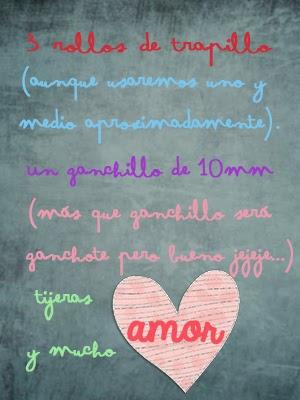 3 rollos de trapillo
(aunque usaremos uno y
medio aproximadamente).
un ganchillo de 10mm
(más que ganchillo será
ganchote pero bueno jejeje...)
tijeras
y mucho
amor